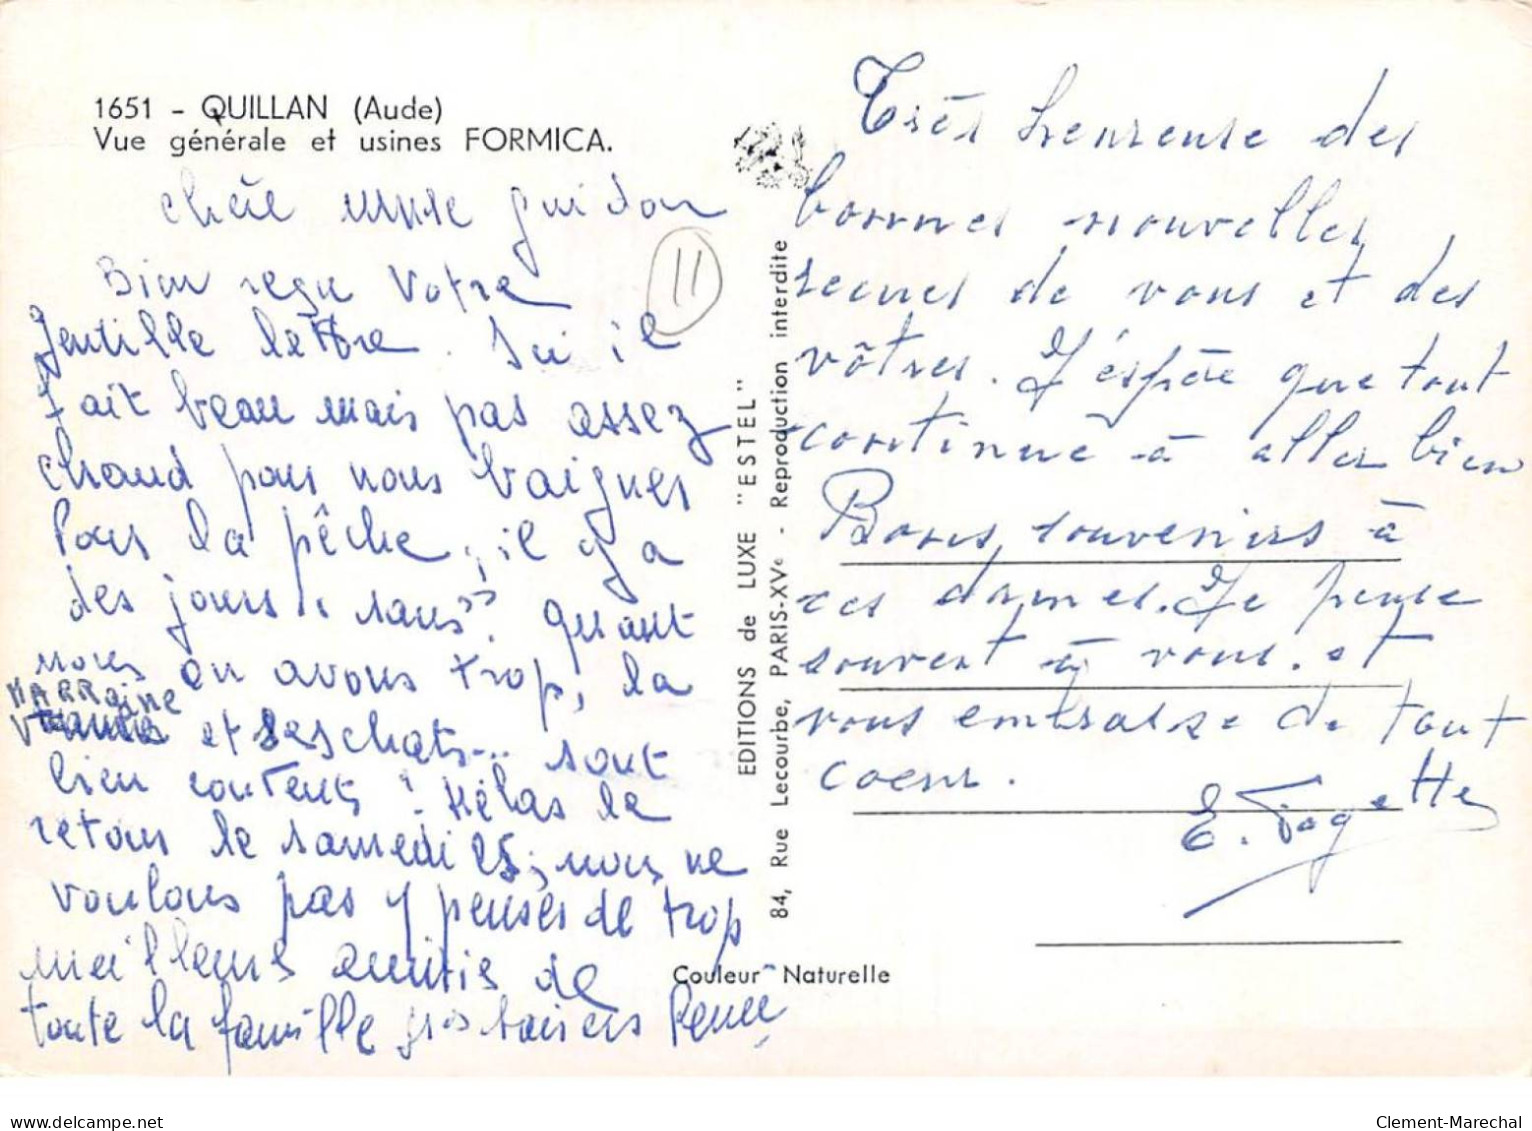 1651 - QUILLAN (Aude)
Vue générale et usines FORMICA.
chère Mme guidon
Bien reçu votre
gentille lettre. Ici il
fait beau mais pas assez
chaud pour nous baigner
Pour la pêche, il y a
des jours "sans". Quant
nous en avons trop, la
MARRaine
et ses chats... sont
bien contents! Hélas le
retour le samedi 25, nous ne
voulons pas y penser de trop
meilleures amitié de
toute la famille gros baisers Renée
11
EDITIONS de LUXE "ESTEL"
84, Rue Lecourbe, PARIS-XVe - Reproduction interdite
Couleur Naturelle
Très heureuse des
bonnes nouvelles
reçues de vous et des
vôtres. J'espère que tout
continue à aller bien
Bons souvenirs à
ces dames. Je pense
souvent à vous. et
vous embrasse de tout
coeur.
E.
Clement-Marechal